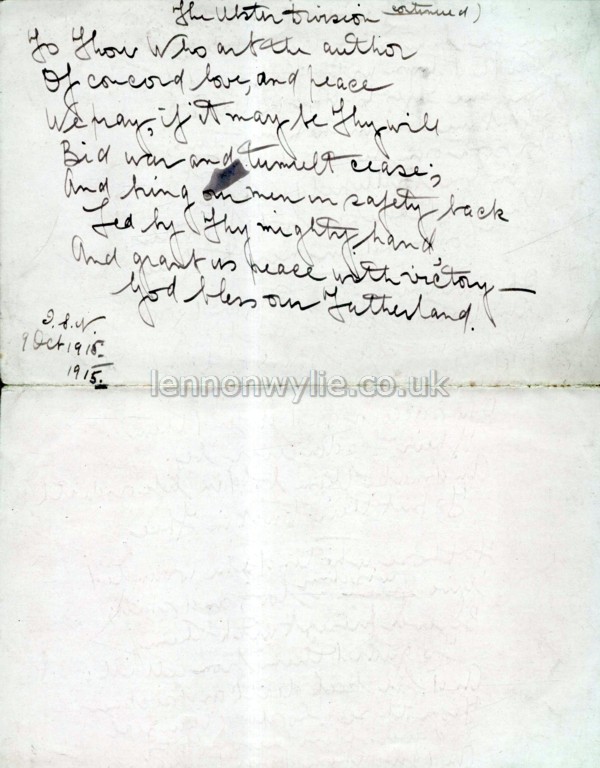 The Ulster Division continued)
To Thou Who art the author
Of concord love, and peace
We pray, if it may be Thy will
Bid war and tumult cease;
And bring our men in safety back
Led by Thy mighty hand
And grant us peace with victory —
God bless our Fatherland.
9 Oct 1915.
1915.
lennonwylie.co.uk